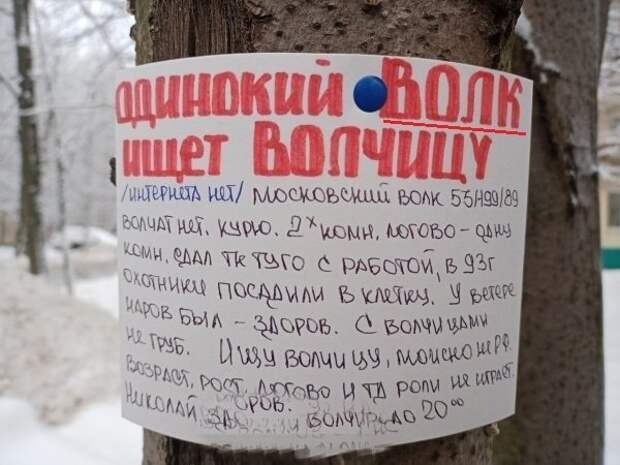 ОДИНОКИЙ ВОЛК
ИЩЕТ ВОЛЧИЦУ
/ИНТЕРНЕТА НЕТ/ МОСКОВСКИЙ ВОЛК 55/199/89
ВОЛЧАТ НЕТ. КУРЮ. 2х КОМН. ЛОГОВО – ОДНУ
КОМН. СДАЛ ТК ТУГО С РАБОТОЙ, В 93Г
ОХОТНИКИ ПОСАДИЛИ В КЛЕТКУ. У ВЕТЕРЕ
НАРОВ БЫЛ – ЗДОРОВ. С ВОЛЧИЦАМИ
НЕ ГРУБ. ИЩУ ВОЛЧИЦУ, МОИСКО НЕ РФ.
ВОЗРАСТ, РОСТ, ЛОГОВО И ТД РОЛИ НЕ ИГРАЕТ.
НИКОЛАЙ ЗДОРОВ. ДО 20 00